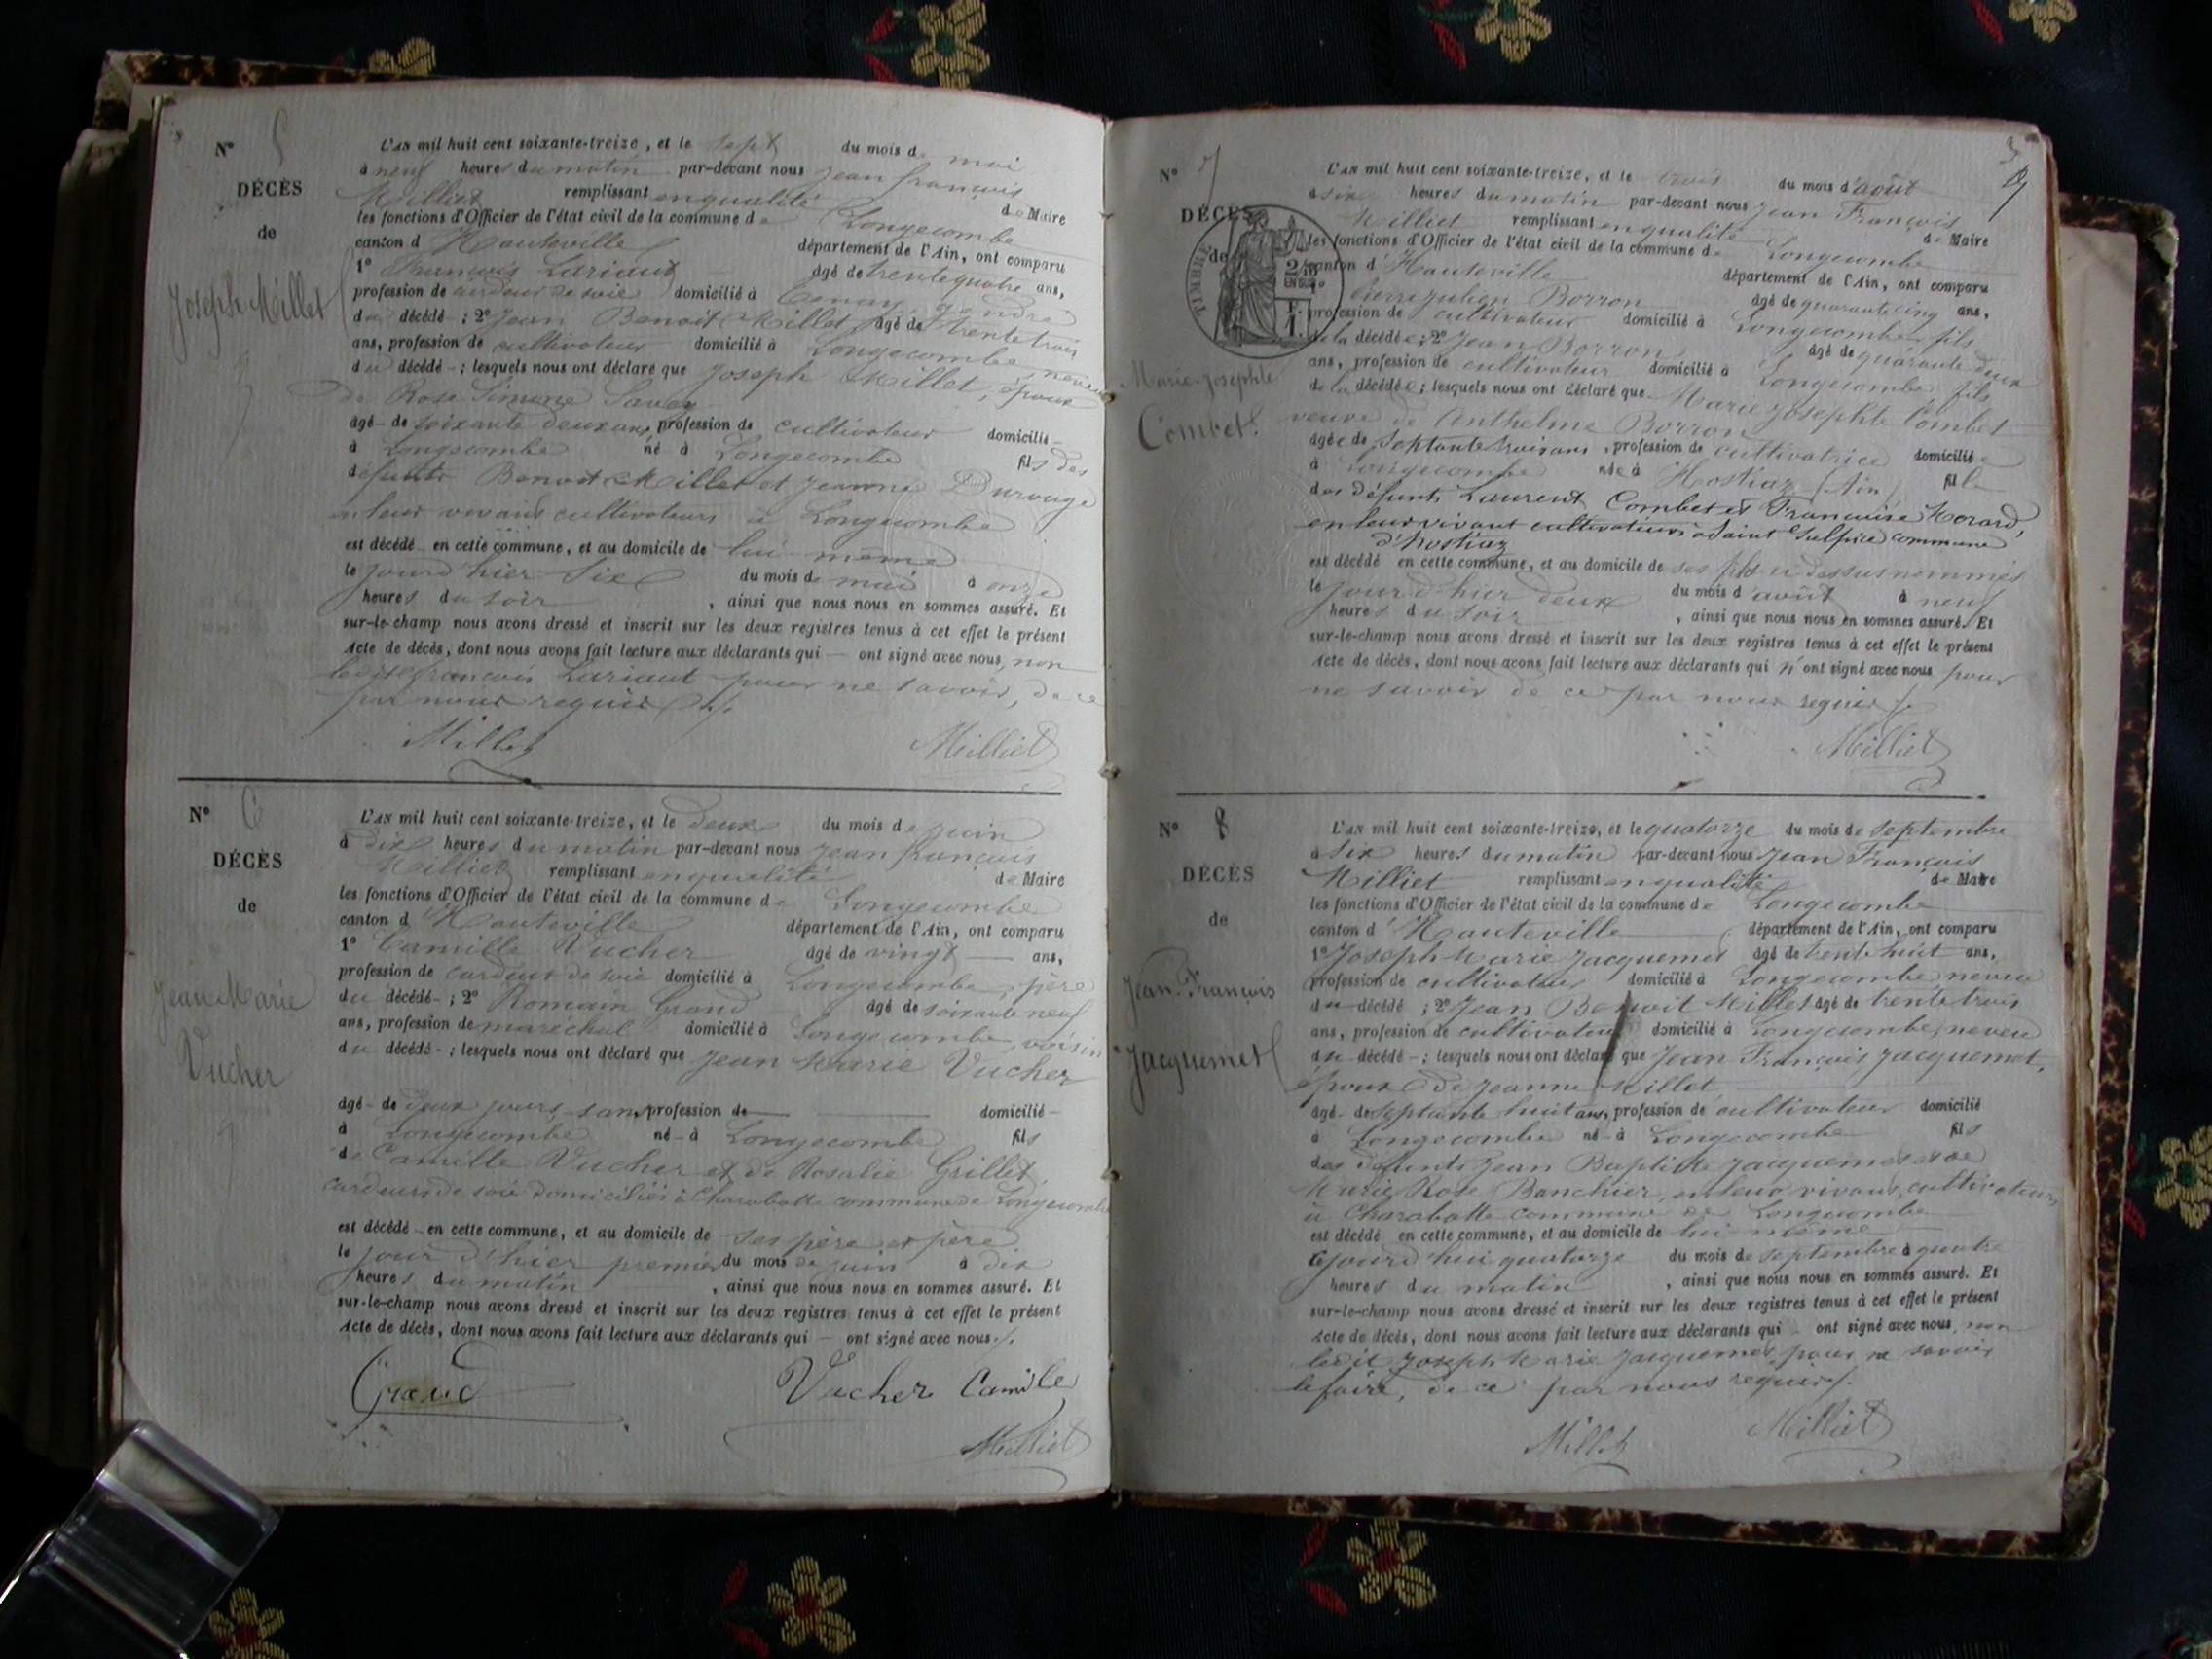 N° 5
DÉCÈS
de
Joseph Millet
L'AN mil huit cent soixante-treize, et le sept du mois de mai
à neuf heures du matin par-devant nous jean françois
Milliet remplissant en qualité de Maire
les fonctions d'Officier de l'état civil de la commune de Longecombe
canton d'Hauteville département de l'Ain, ont comparu
1° François Lariaut âgé de trente quatre ans,
profession de cardeur de soie domicilié à Tenay, gendre
du décédé ; 2° Jean Benoit Millet, âgé de trente trois
ans, profession de cultivateur domicilié à Longecombe, neveu
du décédé ; lesquels nous ont déclaré que Joseph Millet, époux
de Rose Simone Savey
âgé de soixante deux ans, profession de cultivateur domicilié
à Longecombe né à Longecombe fils des
défunts Benoit Millet et Jeanne Durouge
en leur vivant cultivateurs à Longecombe
est décédé en cette commune, et au domicile de lui même
le jour d'hier six du mois de mai à onze
heures du soir, ainsi que nous nous en sommes assuré. Et
sur-le-champ nous avons dressé et inscrit sur les deux registres tenus à cet effet le présent
Acte de décès, dont nous avons fait lecture aux déclarants qui — ont signé avec nous, non
ledit françois Lariaut pour ne savoir, de ce
par nous requis
Millet Milliet
N° 6
DÉCÈS
de
Jean Marie
Vucher
L'AN mil huit cent soixante-treize, et le deux du mois de juin
à dix heures du matin par-devant nous jean françois
Milliet remplissant en qualité de Maire
les fonctions d'Officier de l'état civil de la commune de Longecombe
canton d'Hauteville département de l'Ain, ont comparu
1° Camille Vucher âgé de vingt — ans,
profession de cardeur de soie domicilié à Longecombe, père
du décédé ; 2° Romain Grand âgé de soixante neuf
ans, profession de maréchal domicilié à Longecombe, voisin
du décédé ; lesquels nous ont déclaré que Jean Marie Vucher
âgé de deux jours, sans profession de — domicilié
à Longecombe né à Longecombe fils
de Camille Vucher et de Rosalie Grillet,
cardeurs de soie domiciliés à Charabotte commune de Longecombe
est décédé en cette commune, et au domicile de ses père et père
le jour d'hier premier du mois de juin à dix
heures du matin, ainsi que nous nous en sommes assuré. Et
sur-le-champ nous avons dressé et inscrit sur les deux registres tenus à cet effet le présent
Acte de décès, dont nous avons fait lecture aux déclarants qui — ont signé avec nous
Grand Vucher Camille
Milliet
N° 7
DÉCÈS
de
TIMBRE
2/10
EN SUS
Marie-Josephte
Combet
L'AN mil huit cent soixante-treize, et le trois du mois d'août
à six heures du matin par-devant nous Jean François
Milliet remplissant en qualité de Maire
les fonctions d'Officier de l'état civil de la commune de Longecombe
canton d'Hauteville département de l'Ain, ont comparu
1° Pierre Julien Borron âgé de quarante cinq ans,
profession de cultivateur domicilié à Longecombe, fils
de la décédée ; 2° Jean Borron âgé de quarante deux
ans, profession de cultivateur domicilié à Longecombe, fils
de la décédée ; lesquels nous ont déclaré que Marie Josephte Combet
veuve de Anthelme Borron
âgée de septante trois ans, profession de cultivatrice domiciliée
à Longecombe née à Hostiaz (Ain) fille
des défunts Laurent Combet et Françoise Morard,
en leur vivant cultivateurs à Saint Sulpice commune
d'Hostiaz
est décédé en cette commune, et au domicile de ses fils ci dessus nommés
le jour d'hier deux du mois d'août à neuf
heures du soir, ainsi que nous nous en sommes assuré. Et
sur-le-champ nous avons dressé et inscrit sur les deux registres tenus à cet effet le présent
Acte de décès, dont nous avons fait lecture aux déclarants qui n'ont signé avec nous pour
ne savoir de ce par nous requis
Milliet
N° 8
DÉCÈS
de
Jean-François
Jacquemet
L'AN mil huit cent soixante-treize, et le quatorze du mois de septembre
à six heures du matin par-devant nous Jean François
Milliet remplissant en qualité de Maire
les fonctions d'Officier de l'état civil de la commune de Longecombe
canton d'Hauteville département de l'Ain, ont comparu
1° Joseph Marie Jacquemet âgé de trente huit ans,
profession de cultivateur domicilié à Longecombe, neveu
du décédé ; 2° Jean Benoit Millet âgé de trente trois
ans, profession de cultivateur domicilié à Longecombe, neveu
du décédé ; lesquels nous ont déclaré que Jean François Jacquemet,
époux de Jeanne Millet
âgé de septante huit ans, profession de cultivateur domicilié
à Longecombe né à Longecombe fils
des défunts Jean Baptiste Jacquemet et de
Marie Rose Banchier, en leur vivant, cultivateurs
à Charabotte commune de Longecombe
est décédé en cette commune, et au domicile de lui-même
cejourd'hui quatorze du mois de septembre à quatre
heures du matin, ainsi que nous nous en sommes assuré. Et
sur-le-champ nous avons dressé et inscrit sur les deux registres tenus à cet effet le présent
Acte de décès, dont nous avons fait lecture aux déclarants qui ont signé avec nous, non
ledit Joseph Marie Jacquemet, pour ne savoir
le faire, de ce par nous requis
Millet Milliet